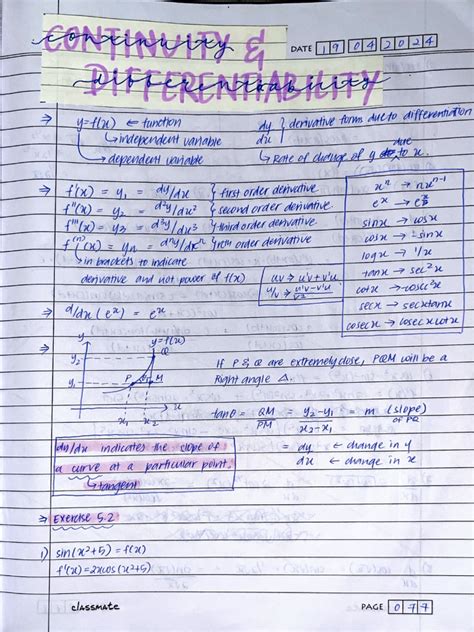 CONTINUITY &
continuity
DATE 19 04 2024
DIFFERENTIABILITY
differentiability
⇒ y=f(x) ← function
↳ independent variable
↳ dependent variable
dy/dx } derivative forms due to differentiation
↳ Rate of change of y due to x.
⇒ f'(x) = y₁ = dy/dx } first order derivative
f''(x) = y₂ = d²y/dx² } second order derivative
f'''(x) = y₃ = d³y/dx³ } third order derivative
f⁽ⁿ⁾(x) = yn = dⁿy/dxⁿ } nth order derivative
↳ in brackets to indicate
derivative and not power of f(x)
uv → u'v + v'u
u/v → u'v - v'u / v²
xⁿ → nxⁿ⁻¹
eˣ → eˣ
sinx → cosx
cosx → -sinx
logx → 1/x
tanx → sec²x
cotx → -cosec²x
secx → secxtanx
cosecx → cosecxcotx
⇒ d/dx (eˣ) = eˣ
⇒ y
y=f(x)
y₂
Q
y₁
P
θ
M
x₁ x₂ x
If P & Q are extremely close, PQM will be a
Right angle △.
tanθ = QM/PM = y₂-y₁/x₂-x₁ = m (slope) of PQ
= dy ← change in y
dx ← change in x
dy/dx indicates the slope of
a curve at a particular point.
↳ tangent
⇒ Exercise 5.2
1) sin(x²+5) = f(x)
f'(x) = 2xcos(x²+5)
classmate
PAGE 077